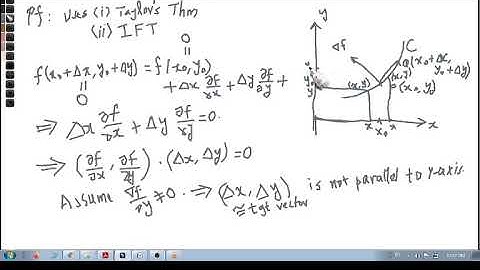 Pf: Uses (i) Taylor's Thm
(ii) IFT
0
0
f(x₀+Δx, y₀+Δy) = f(x₀, y₀)
+ Δx ∂f/∂x + Δy ∂f/∂y +
⇒ Δx ∂f/∂x + Δy ∂f/∂y = 0.
⇒ (∂f/∂x, ∂f/∂y) · (Δx, Δy) = 0
Assume ∂f/∂y ≠ 0. ⇒ (Δx, Δy) is not parallel to Y-axis.
≈ tgt vector
y
C
∇f
(x₀+Δx,
y₀+Δy)
(x,y)
(x,y)
(x₀, y₀)
x x₀ x
x